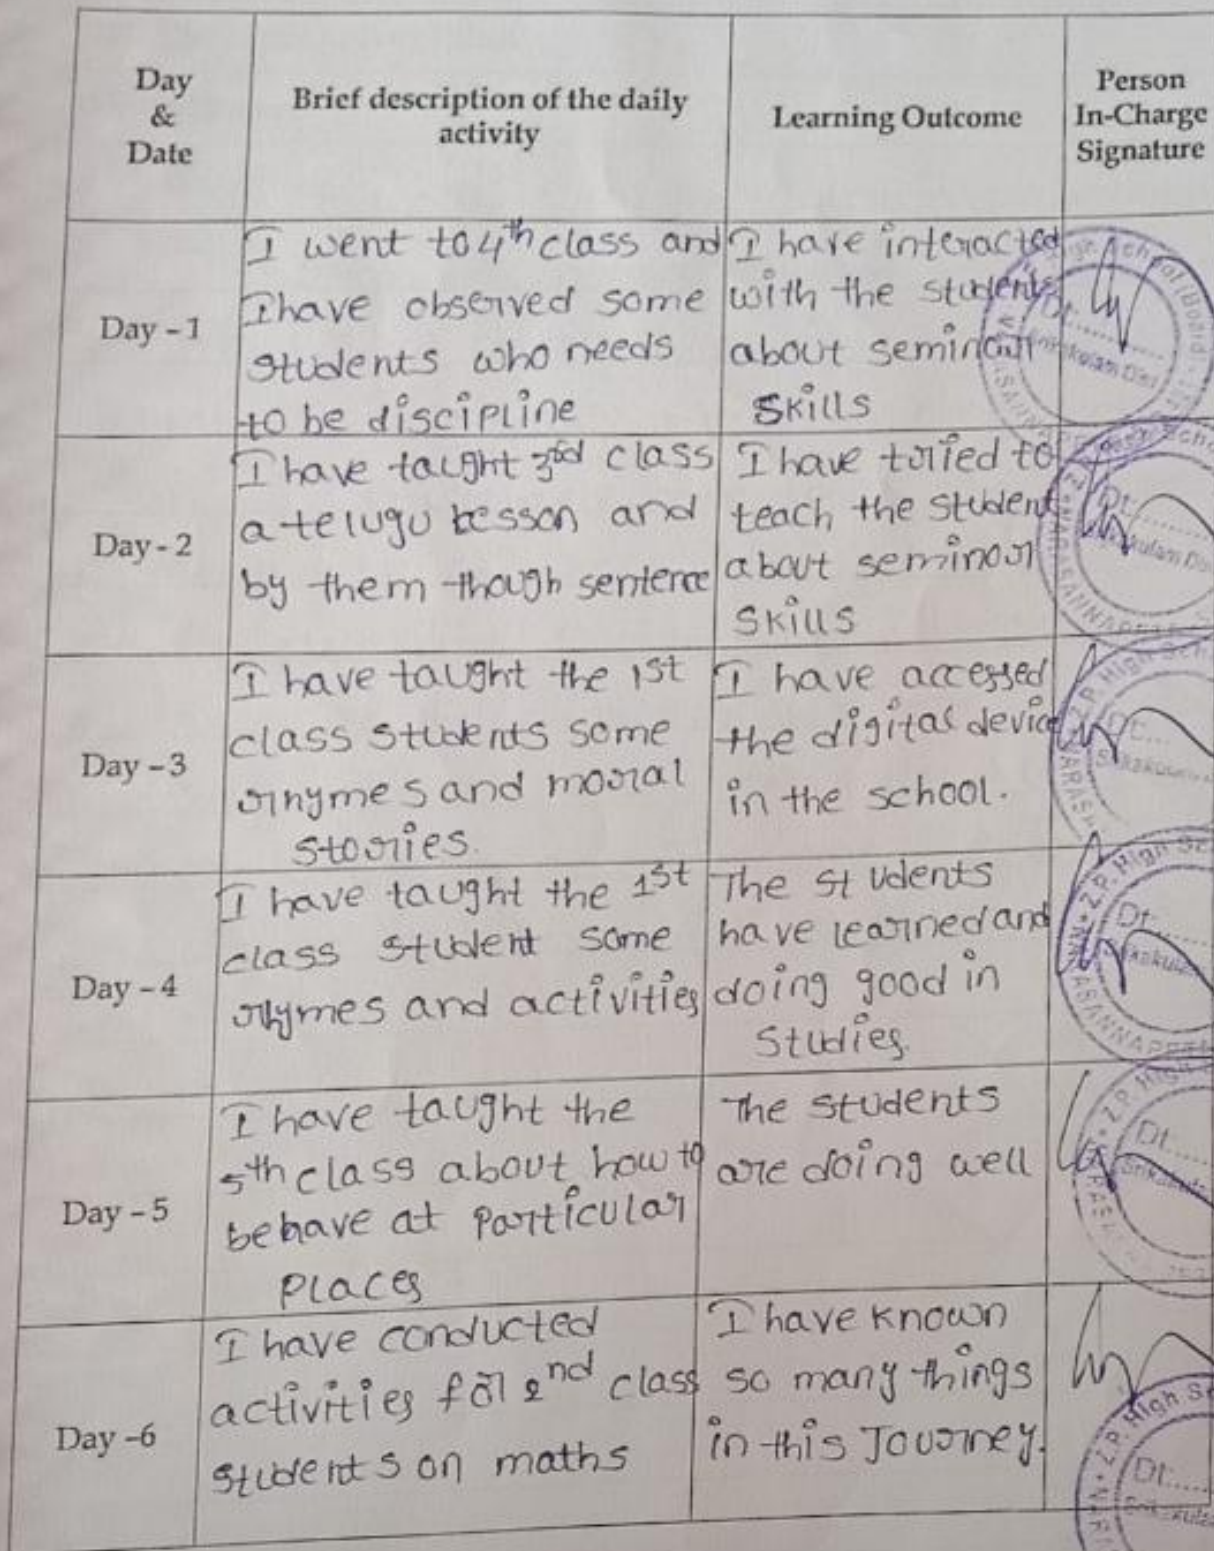 Day
&
Date
Brief description of the daily
activity
Learning Outcome
Person
In-Charge
Signature
Day - 1
I went to 4th class and
I have observed some
students who needs
to be discipline
I have interacted
with the students
about seminar
skills
Day - 2
I have taught 3rd class
a telugu lesson and
by them though sentence
I have tried to
teach the student
about seminar
skills
Day - 3
I have taught the 1st
class students some
rhymes and moral
stories.
I have accessed
the digital device
in the school.
Day - 4
I have taught the 1st
class student some
rhymes and activities
The students
have learned and
doing good in
studies.
Day - 5
I have taught the
5th class about how to
behave at particular
places
The students
are doing well
Day -6
I have conducted
activities for 2nd class
students on maths
I have known
so many things
in this Journey.